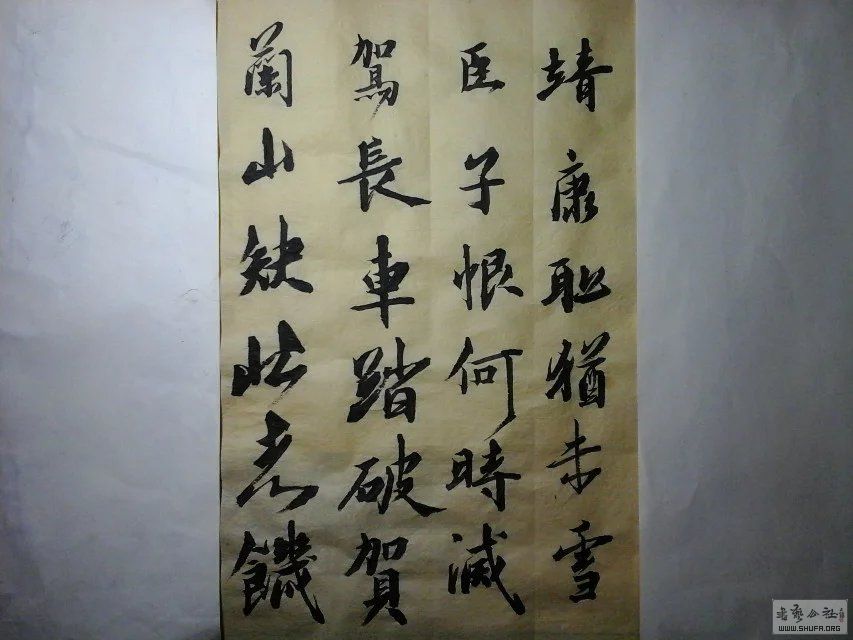 靖康耻猶未雪
臣子恨何時滅
駕長車踏破賀
蘭山缺壯志饑
書藝公社
WWW.SHUFA.ORG